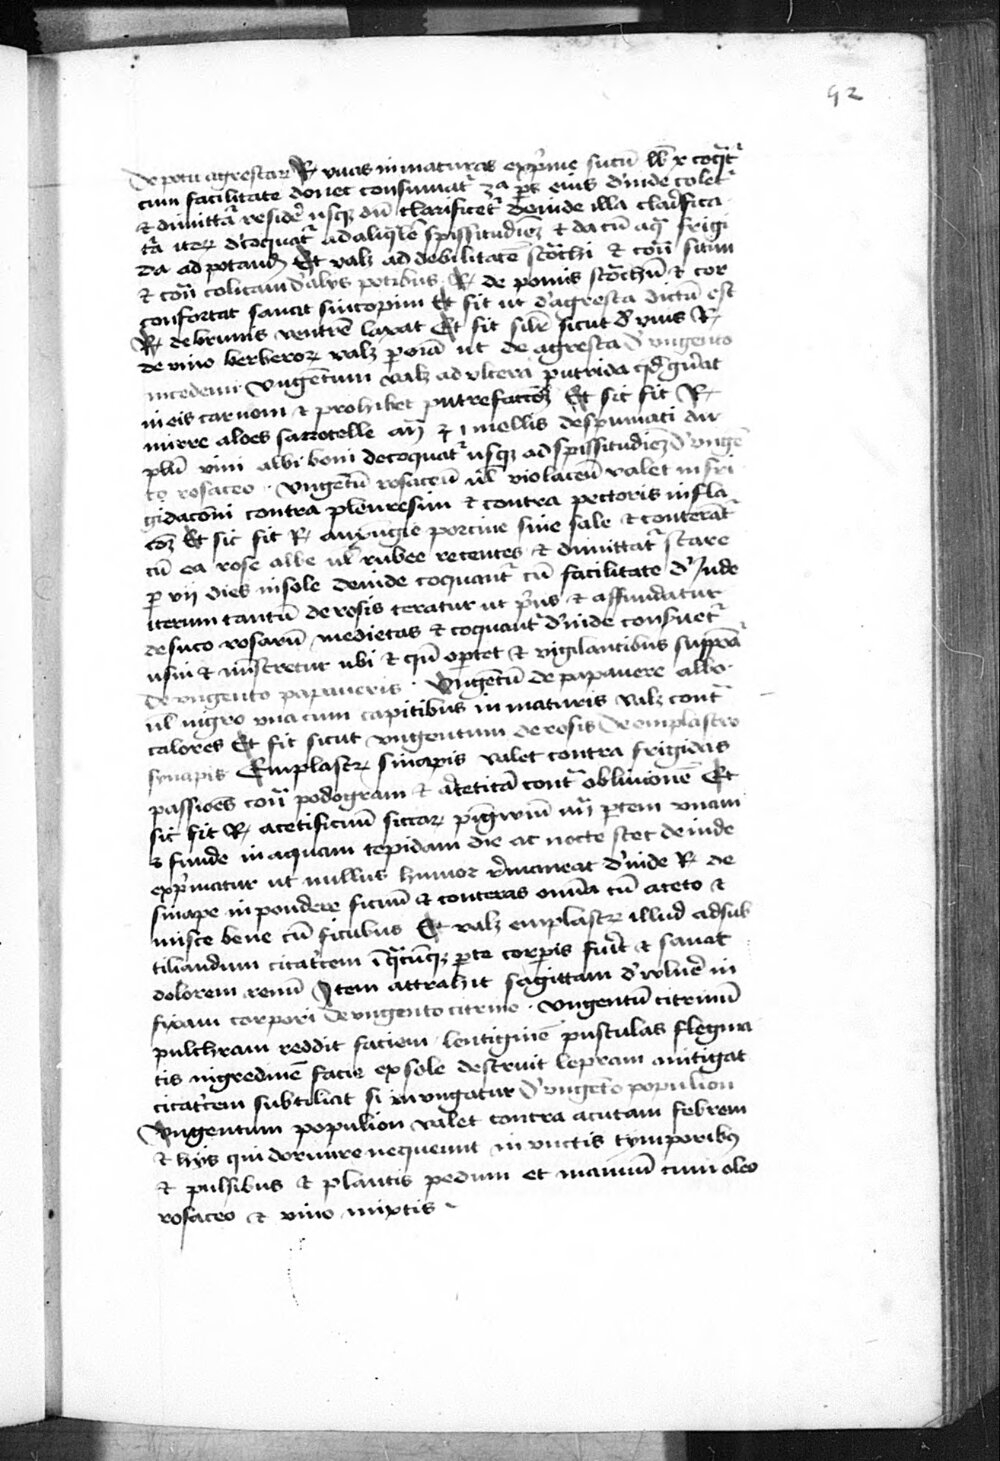 92
De potu agrestar R uvas inmaturas exprime sucū lib x coqᵃtʳ
cum facilitate donec consumatʳ za ps eius dinde coletʳ
& dimittaʳ residēʳ usqȝ dū clarificetʳ Deinde illa clarifica
ta iterꝝ decoquatʳ ad aliqᵃlē spissitudinēȝ & da cū aqᵃ frigi
da ad potandū Et valȝ ad debilitatē stōchi & conᵃ sitim
& conᵃ colicam d'alijs potibus R de pomis stōchū & cor
confortat sanat sincopim Et fit ut d'agresta dictū est
R de brunis ventrē laxat Et fit silʳ sicut d' uvis R
de vino berberorꝝ valȝ ut de agresta d' ungento
Ungētum valȝ ad ulcera putrida qd gn̄at
in eis carnem & prohibet putrefaccōȝ Et sic fit R
mirre aloes sarcocelle añ ℥ j mellis despumati
vini albi boni decoquatʳ usqȝ ad spissitudiēȝ d' unge
to rosaceo · Ungētū rosaceū ul' violaceū valet in fri
gidacōni contra pleuresim & contra pectoris infla
cōȝ Et sic fit R auxungie porcine sine sale & conteratʳ
cū ea rose albe ul' rubee recentes & dimittatʳ stare
ꝑ vij dies in sole deinde coquantʳ cū facilitate d'Inde
iterum tantū de rosis teratur ut pʳus & affundatur
de suco rosarū medietas & coquantʳ d'inde conservetʳ
usui & miscretur ubi & qn̄ oꝑtet & vigilantibus
De ungento papaveris · Ungētū de papavere albo
ul' nigro una cum capitibus inmaturis valȝ contʳ
calores Et fit sicut ungentum de rosis De emplastro
synapis Emplastrꝝ sinapis valet contra frigidas
passiōes conᵃ podogram & artetitā contʳ oblivionē Et
sic fit R aceti ficuū siccarꝝ pīgwiū añ ꝑtem unam
funde in aquam tepidam die ac nocte stet deinde
expʳmatur ut nullus humor remaneat d'inde R de
sinape in pondere ficuū & conteras omīa cū aceto &
misce bene cū ficubus Et valȝ emplastrꝝ illud ad sub
tiliandum citatʳcem ī qᵃcūqȝ ꝑte corꝑis fuēt & sanat
dolorem renū Item attrahit sagittam in
fixam corpori De ungento citrino · Ungentū citrinū
pulchram reddit faciem lentiginē pustulas flegma
tis nigredinē facie ex sole destruit lepram mitigat
citatʳcem subtiliat si inungatur d' ungēto populion
Ungentum populion valet contra acutam febrem
& hijs qui dormire nequeunt in unctis tymporibȝ
& pulsibus & plantis pedum et manuū cum oleo
rosaceo & vino mixtis